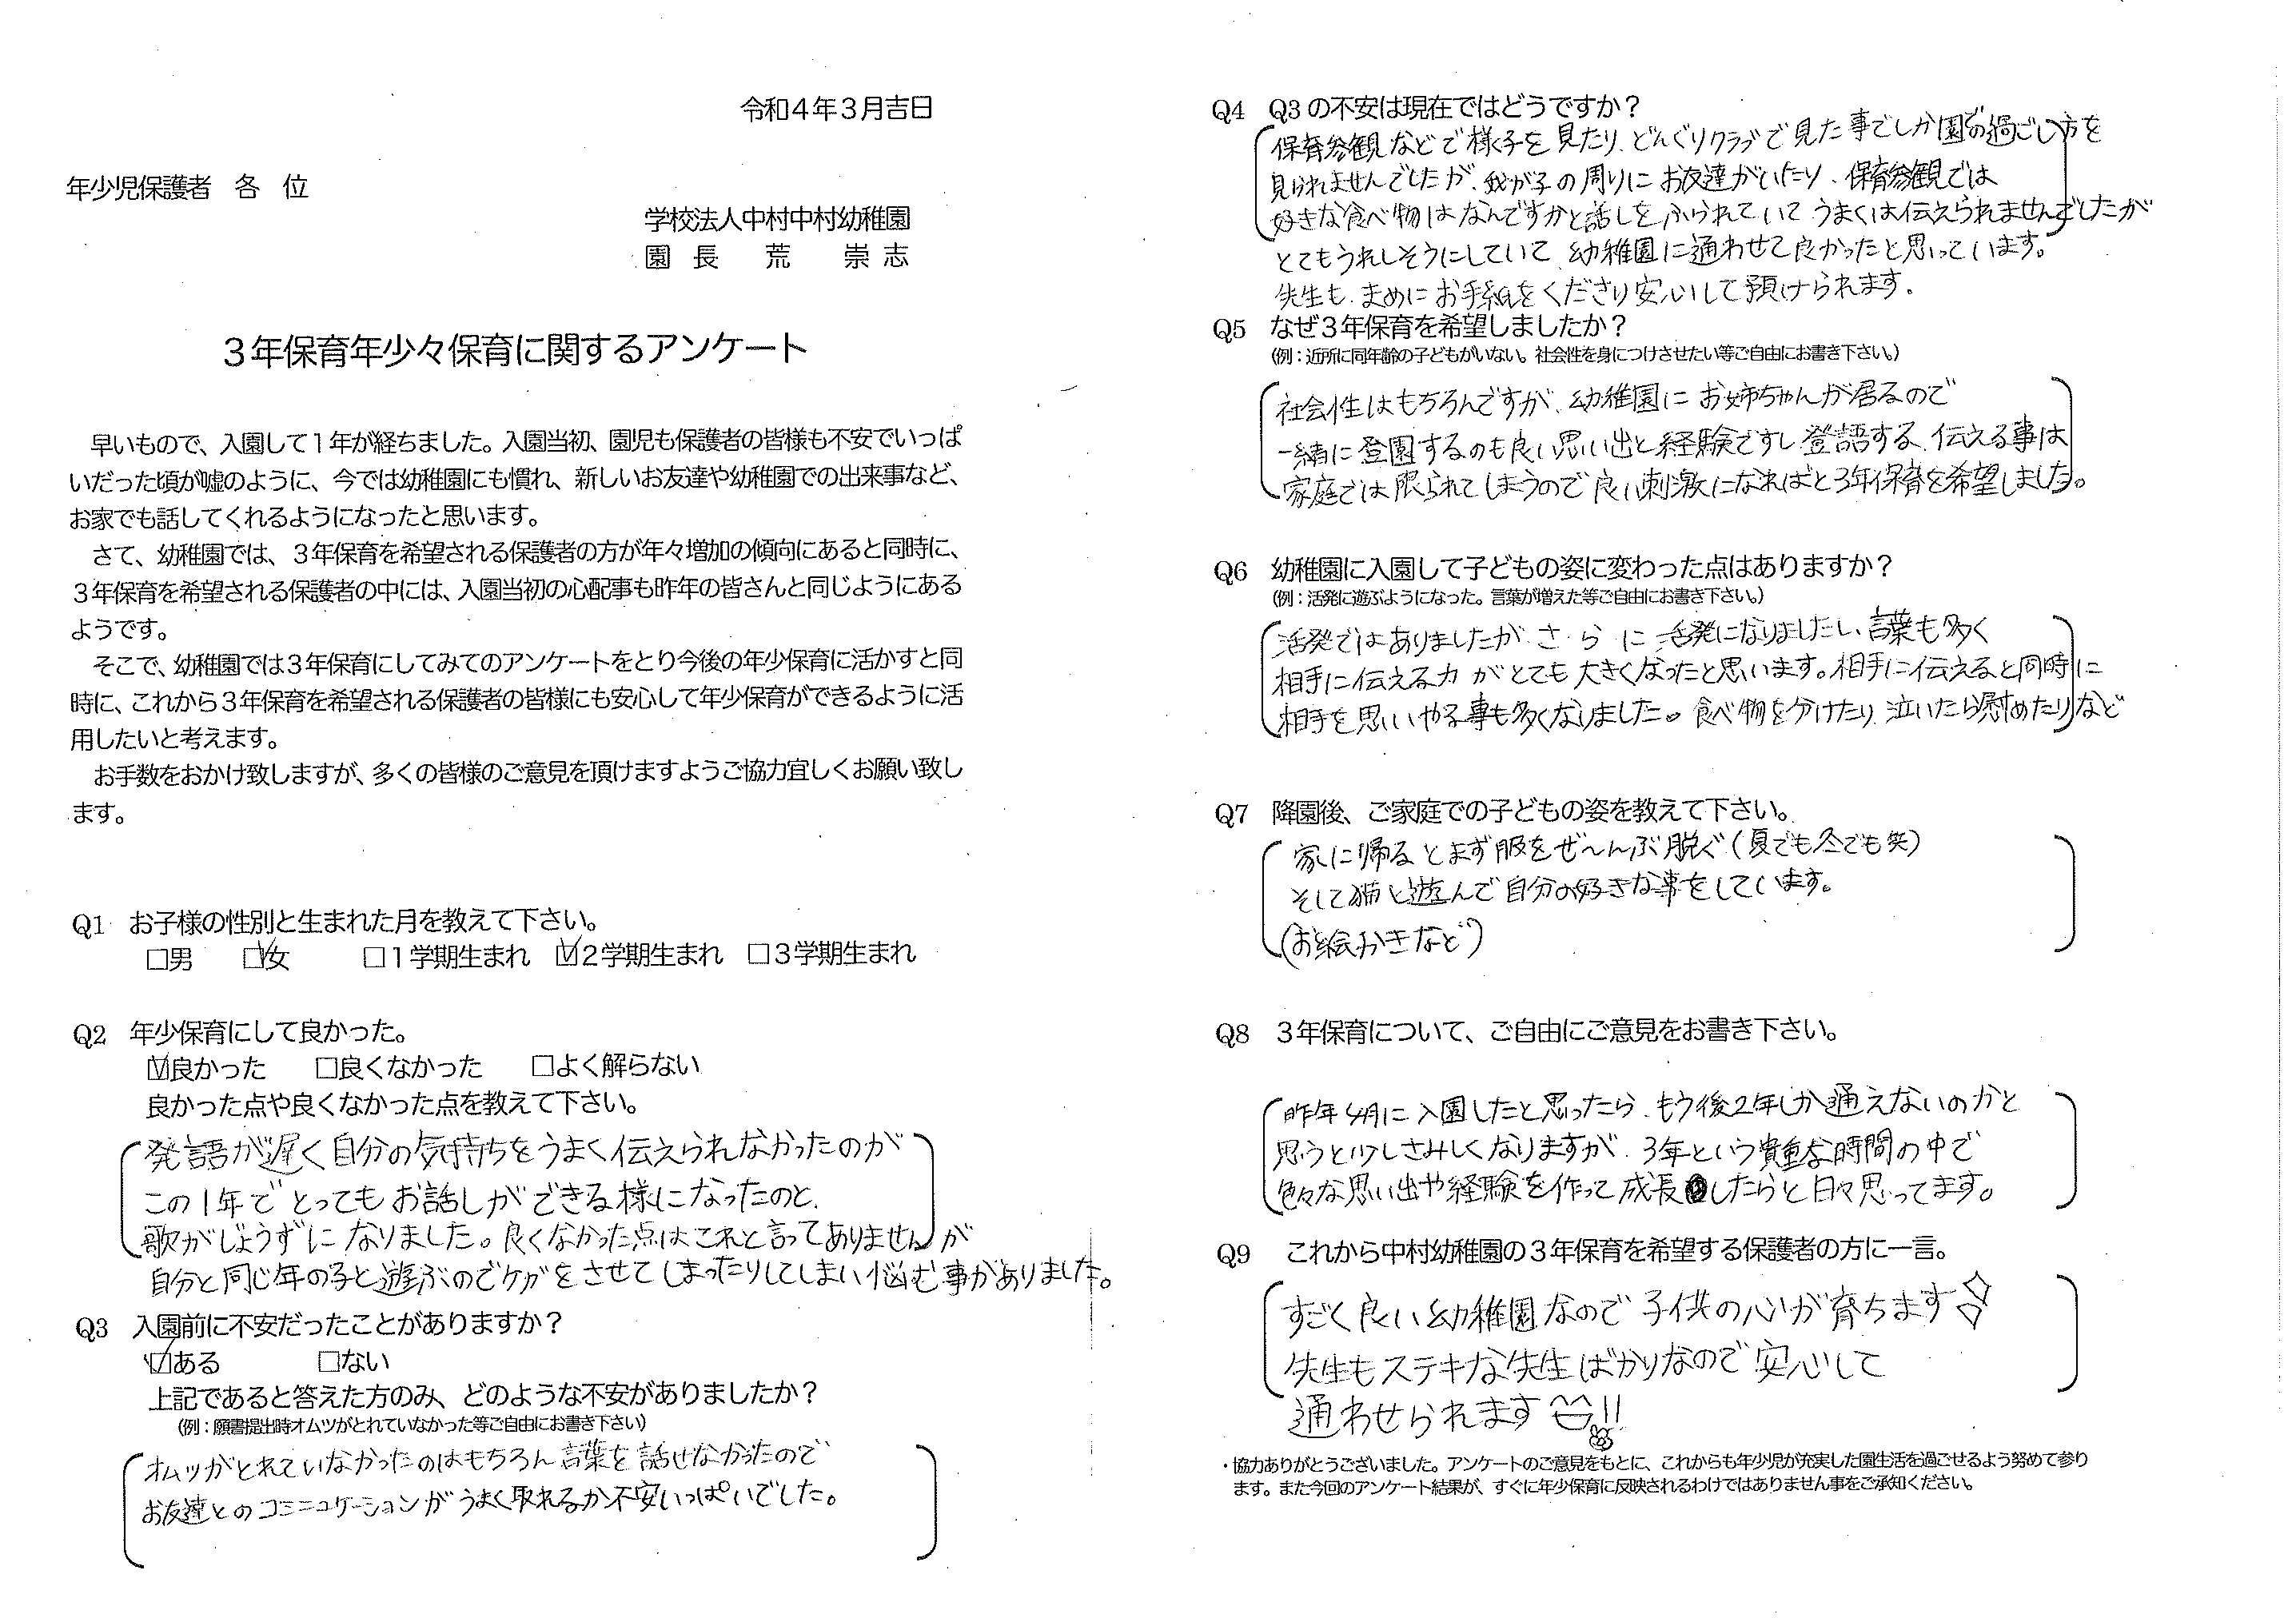 令和４年３月吉日
年少児保護者　各　位
学校法人中村中村幼稚園
園　長　荒　崇　志
３年保育年少々保育に関するアンケート
早いもので、入園して１年が経ちました。入園当初、園児も保護者の皆様も不安でいっぱ
いだった頃が嘘のように、今では幼稚園にも慣れ、新しいお友達や幼稚園での出来事など、
お家でも話してくれるようになったと思います。
さて、幼稚園では、３年保育を希望される保護者の方が年々増加の傾向にあると同時に、
３年保育を希望される保護者の中には、入園当初の心配事も昨年の皆さんと同じようにある
ようです。
そこで、幼稚園では３年保育にしてみてのアンケートをとり今後の年少保育に活かすと同
時に、これから３年保育を希望される保護者の皆様にも安心して年少保育ができるように活
用したいと考えます。
お手数をおかけ致しますが、多くの皆様のご意見を頂けますようご協力宜しくお願い致し
ます。
Q1　お子様の性別と生まれた月を教えて下さい。
□男　☑女　□１学期生まれ　☑２学期生まれ　□３学期生まれ
Q2　年少保育にして良かった。
☑良かった　□良くなかった　□よく解らない
良かった点や良くなかった点を教えて下さい。
発語が遅く自分の気持ちをうまく伝えられなかったのが
この1年でとってもお話しができる様になったのと、
歌がじょうずになりました。良くなかった点はこれと言ってありませんが
自分と同じ年の子と遊ぶのでケガをさせてしまったりしてしまい悩む事がありました。
Q3　入園前に不安だったことがありますか？
☑ある　□ない
上記であると答えた方のみ、どのような不安がありましたか？
（例：願書提出時オムツがとれていなかった等ご自由にお書き下さい）
オムツがとれていなかったのはもちろん言葉を話せなかったので
お友達とのコミニュケーションがうまく取れるか不安いっぱいでした。
Q4　Q3の不安は現在ではどうですか？
保育参観などで様子を見たり、どんぐりクラブで見た事でしか園での過ごし方を
見られませんでしたが、我が子の周りにお友達がいたり、保育参観では
好きな食べ物はなんですかと話しをふられていてうまくは伝えられませんでしたが
とてもうれしそうにしていて、幼稚園に通わせて良かったと思っています。
先生も、まめにお手紙をくださり安心して預けられます。
Q5　なぜ３年保育を希望しましたか？
（例：近所に同年齢の子どもがいない。社会性を身につけさせたい等ご自由にお書き下さい。）
社会性はもちろんですが、幼稚園にお姉ちゃんが居るので
一緒に登園するのも良い思い出と経験ですし登語する、伝える事は
家庭では限られてしまうので良い刺激になればと3年保育を希望しました。
Q6　幼稚園に入園して子どもの姿に変わった点はありますか？
（例：活発に遊ぶようになった。言葉が増えた等ご自由にお書き下さい。）
活発ではありましたがさらに活発になりましたし、言葉も多く
相手に伝える力がとても大きくなったと思います。相手に伝えると同時に
相手を思いやる事も多くなりました。食べ物を分けたり泣いたら慰めたりなど
Q7　降園後、ご家庭での子どもの姿を教えて下さい。
家に帰るとまず服をぜ〜んぶ脱ぐ（夏でも冬でも笑）
そして猫と遊んで自分の好きな事をしています。
（お絵かきなど）
Q8　３年保育について、ご自由にご意見をお書き下さい。
昨年4月に入園したと思ったら、もう後2年しか通えないのかと
思うと少しさみしくなりますが、3年という貴重な時間の中で
色々な思い出や経験を作って成長したらと日々思ってます。
Q9　これから中村幼稚園の３年保育を希望する保護者の方に一言。
すごく良い幼稚園なので子供の心が育ちます
先生もステキな先生ばかりなので安心して
通わせられます!!
・協力ありがとうございました。アンケートのご意見をもとに、これからも年少児が充実した園生活を過ごせるよう努めて参り
ます。また今回のアンケート結果が、すぐに年少保育に反映されるわけではありません事をご承知ください。